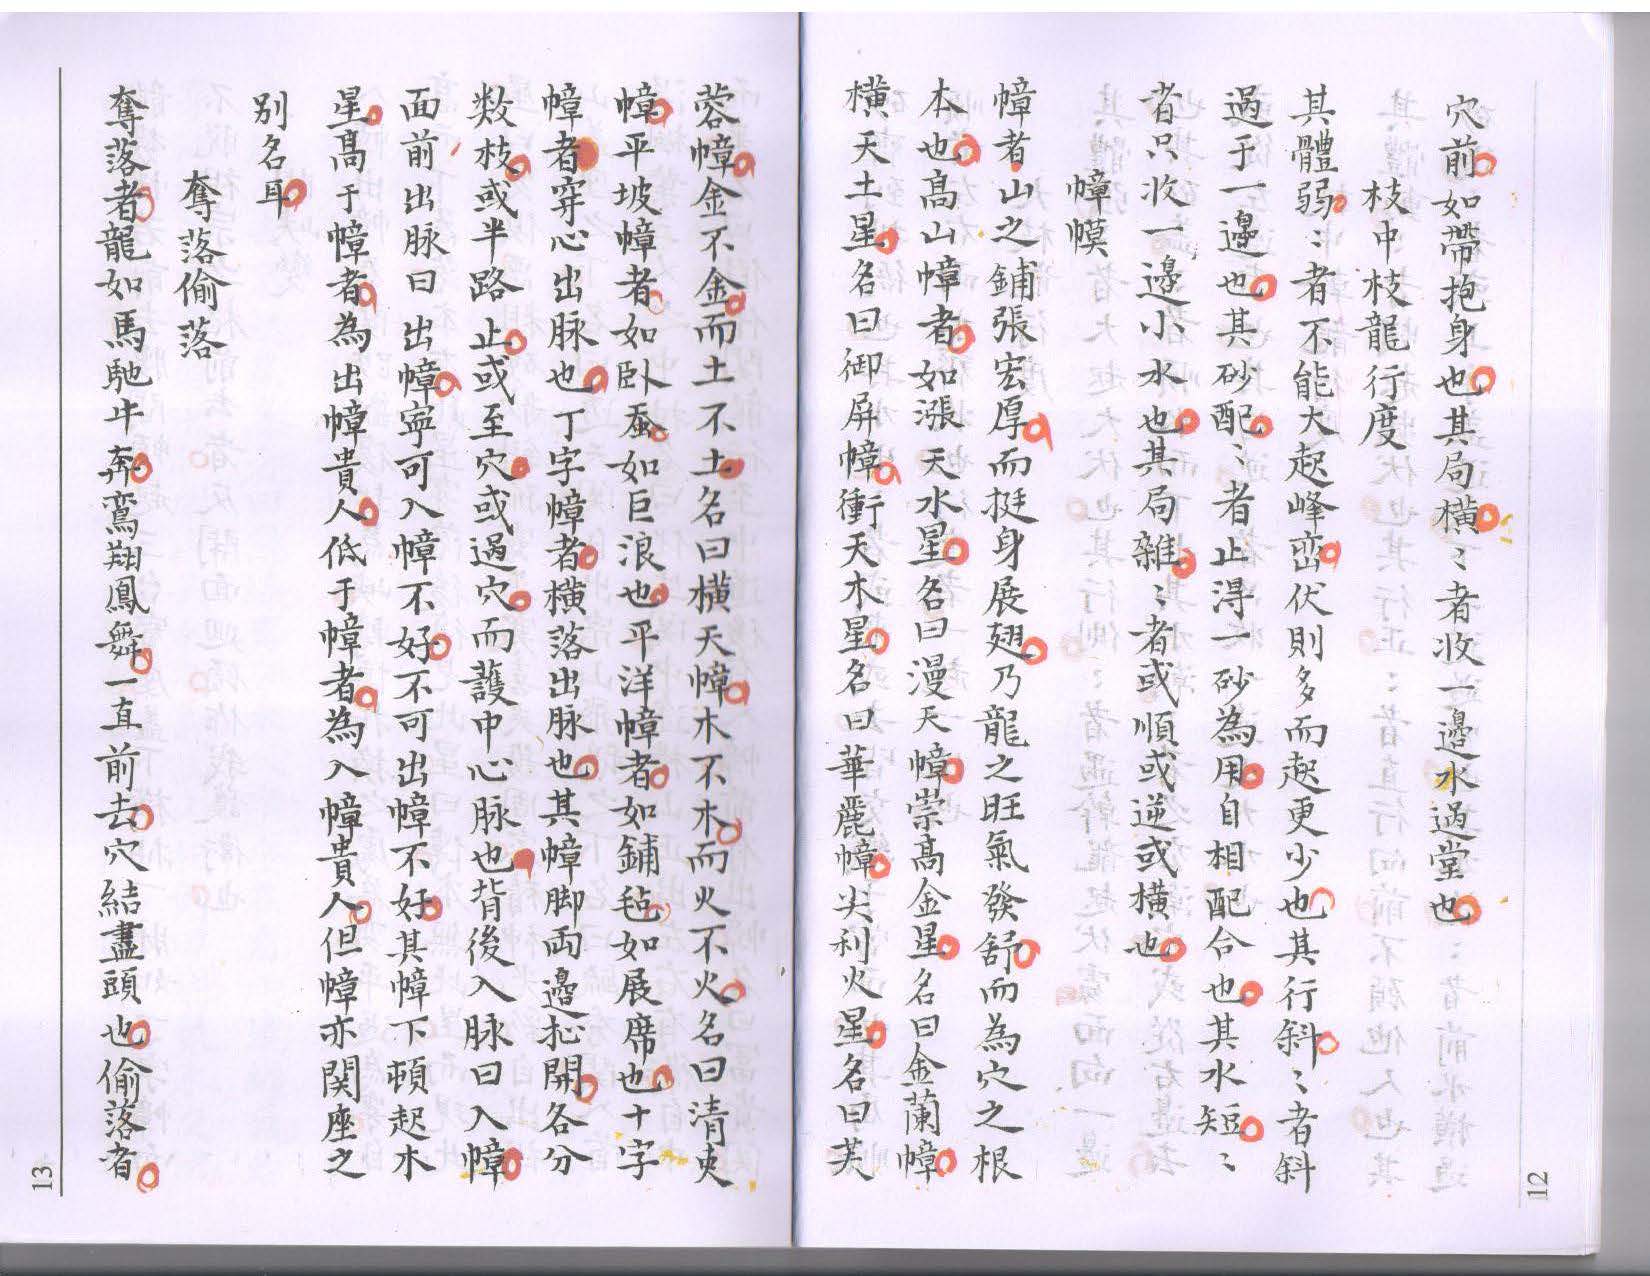 穴前如帶抱身也其局横〻者收一邊水過堂也
枝中枝龍行度
其體弱〻者不能大起峰巒伏則多而起更少也其行斜〻者斜
過于一邊也其砂配〻者止得一砂為用自相配合也其水短〻
者只收一邊小水也其局雜〻者或順或逆或横也
幛幙
幛者山之鋪張宏厚而挺身展翅乃龍之旺氣發舒而為穴之根
本也高山幛者如漲天水星名曰漫天幛崇高金星名曰金蘭幛
横天土星名曰御屏幛衝天木星名曰華麗幛尖利火星名曰芙
蓉幛金不金而土不土名曰横天幛木不木而火不火名曰清吏
幛平坡幛者如卧蚕如巨浪也平洋幛者如鋪毡如展席也十字
幛者穿心出脉也丁字幛者横落出脉也其幛脚両邊抋開各分
数枝或半路止或至穴或過穴而護中心脉也背後入脉曰入幛
面前出脉曰出幛寧可入幛不好不可出幛不好其幛下頓起木
星高于幛者為出幛貴人低于幛者為入幛貴人但幛亦関座之
别名耳
奪落偷落
奪落者龍如馬馳牛奔鸞翔鳳舞一直前去穴結盡頭也偷落者
12
13